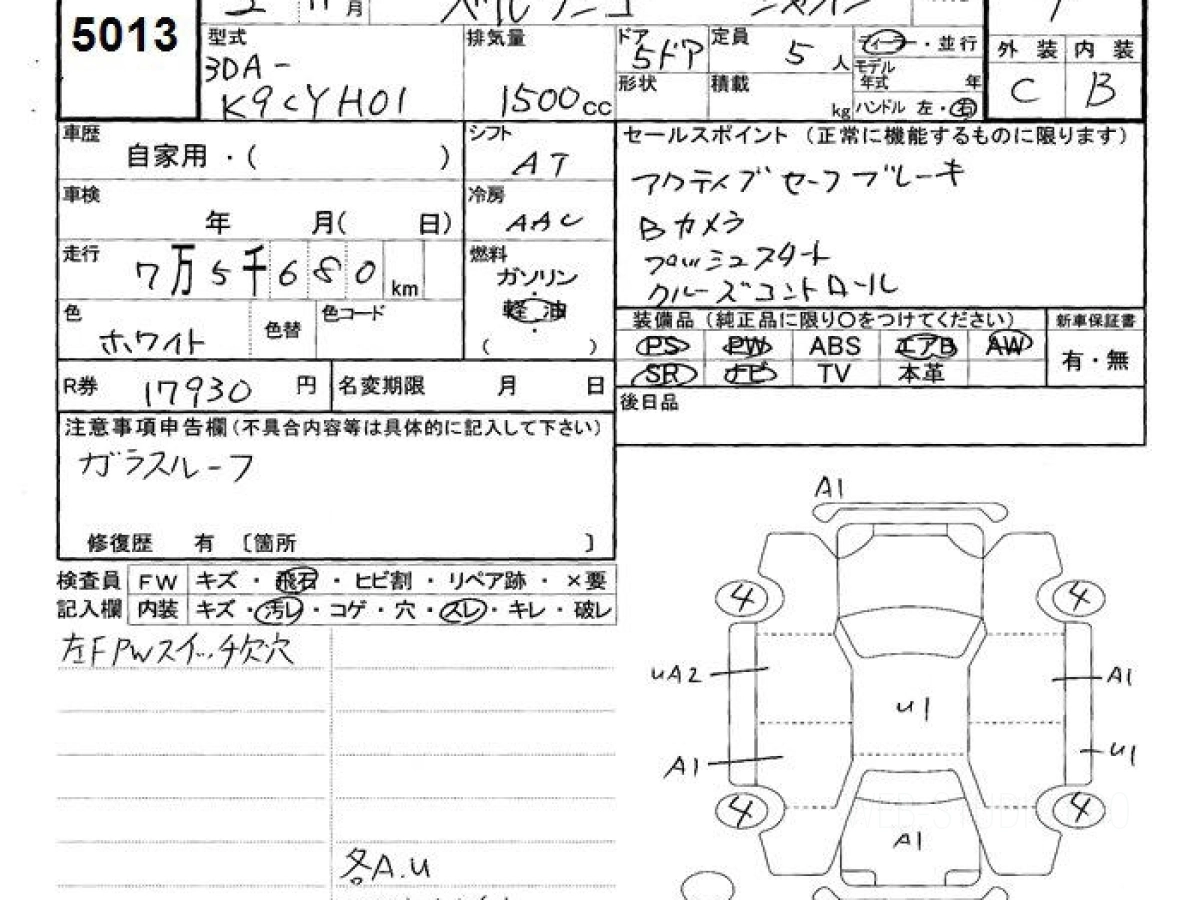 5013
月
型式
3DA-
K9CYH01
排気量
1500cc
ドア
5ドア
定員
5人
形状
積載
kg
ディーラー・並行
モデル
年式 年
ハンドル 左・右
外装 内装
C B
車歴
自家用・( )
シフト
AT
車検
年 月( 日)
冷房
AAC
走行
7万5千680km
燃料
ガソリン
・
軽油
・
( )
色
ホワイト
色替
色コード
セールスポイント (正常に機能するものに限ります)
アクティブセーフブレーキ
Bカメラ
プッシュスタート
クルーズコントロール
装備品(純正品に限り〇をつけてください)
新車保証書
PS PW ABS エアB AW
SR ナビ TV 本革
有・無
R券 17930円
名変期限 月 日
後日品
注意事項申告欄(不具合内容等は具体的に記入して下さい)
ガラスルーフ
修復歴 有 〔箇所 〕
検査員 FW キズ・飛石・ヒビ割・リペア跡・×要
記入欄 内装 キズ・汚レ・コゲ・穴・スレ・キレ・破レ
左FPWスイッチ欠穴
各A.U
A1
4
4
uA2
A1
u1
A1
u1
4
4
A1